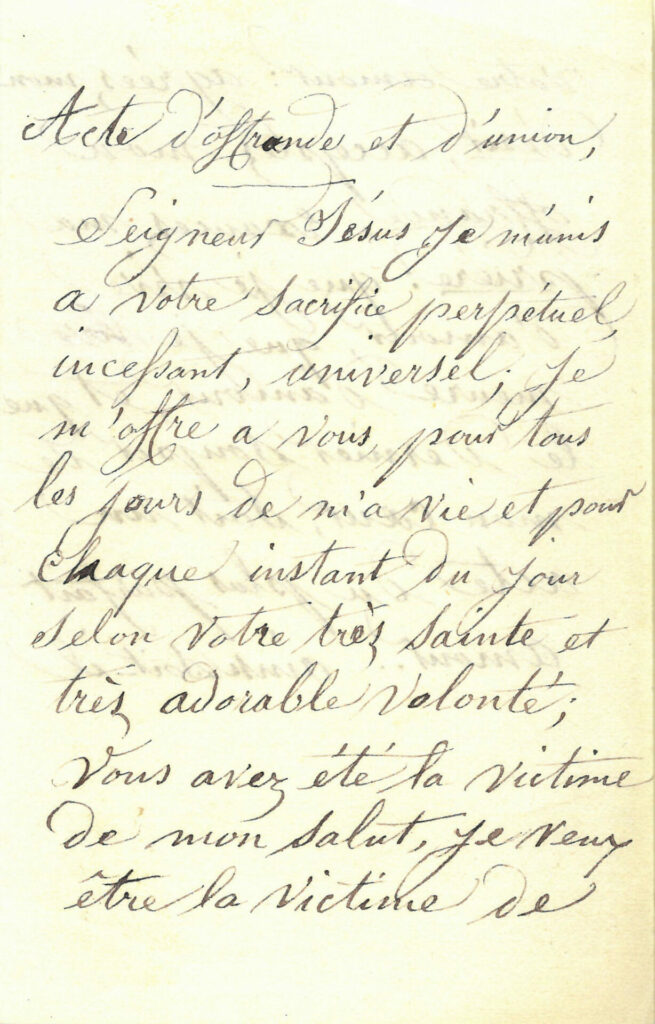 Acte d'offrande et d'union,
Seigneur Jésus je m'unis
a votre sacrifice perpétuel,
incessant, universel; je
m'offre a vous pour tous
les jours de m'a vie et pour
chaque instant du jour
selon votre très sainte et
très adorable volonté;
Vous avez été la victime
de mon salut, je veux
être la victime de